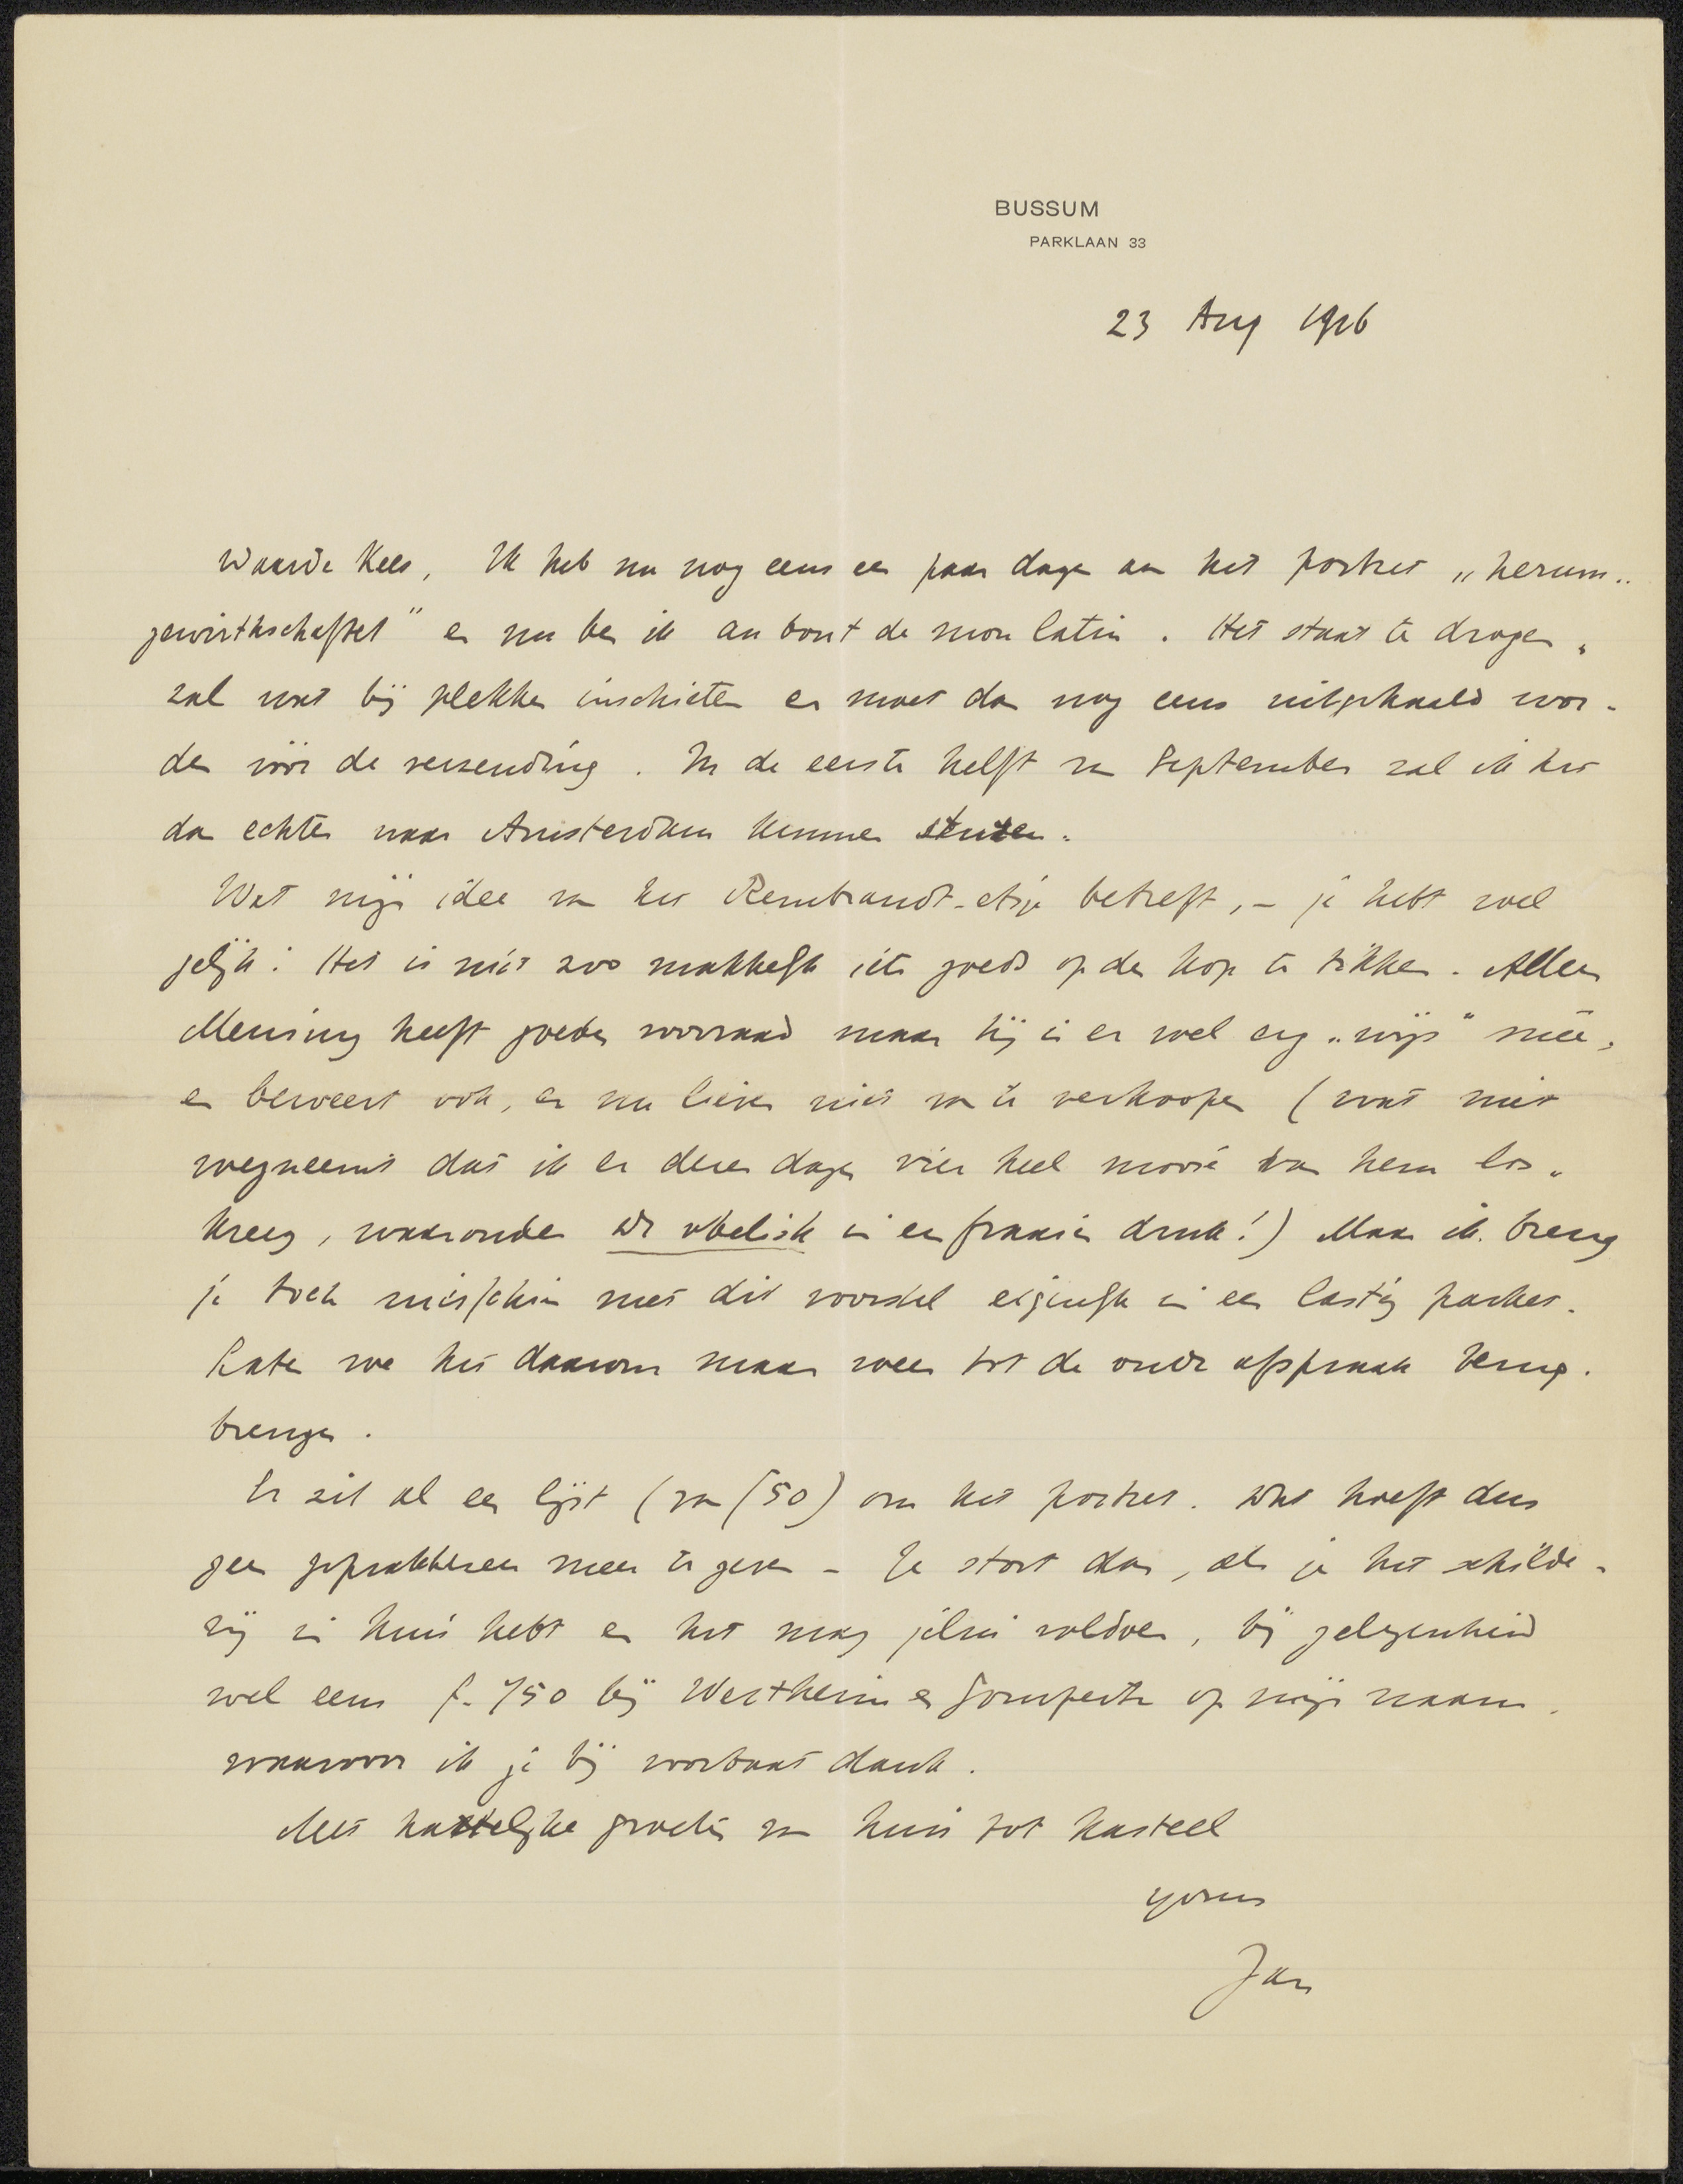 BUSSUM
PARKLAAN 33
23 Aug 1916
Waarde Kees, Ik heb nu nog eens een paar dagen aan het portret „herum-
gewirthschaftet" en nu ben ik au bout de mon latin. Het staat te drogen,
zal wat bij plekken inschieten en moet dan nog eens uitgehaald wor-
den vóór de verzending. In de eerste helft van September zal ik het
dan echter naar Amsterdam kunnen sturen.
Wat mijn idee van het Rembrandt-etsje betreft, – je hebt wel
gelijk: Het is niet zoo makkelijk iets goeds op den kop te tikken. Alleen
Mensing heeft goeden voorraad maar hij is er wel erg „wijs" mee,
en beweert ook, er nu liever niet van te verkoopen (wat niet
wegneemt dat ik er dezer dagen vier heel mooie van hem los-
kreeg, waaronder de obelisk in een fraaien druk!) Maar ik breng
je toch misschien met dit voorstel eigenlijk in een lastig parket.
Laten we het daarom maar weer tot de oude afspraak terug-
brengen.
Er zit al een lijst (van f50) om het portret. Dat hoeft dus
geen geprakkizeer meer te geven – Je stort dan, als je het schilde-
rij in huis hebt en het mag jelui voldoen, bij gelegenheid
wel eens f. 750 bij Wertheim en Gompertz op mijn naam,
waarvoor ik je bij voorbaat dank.
Met hartelijke groeten van huis tot kasteel
yours
Jan